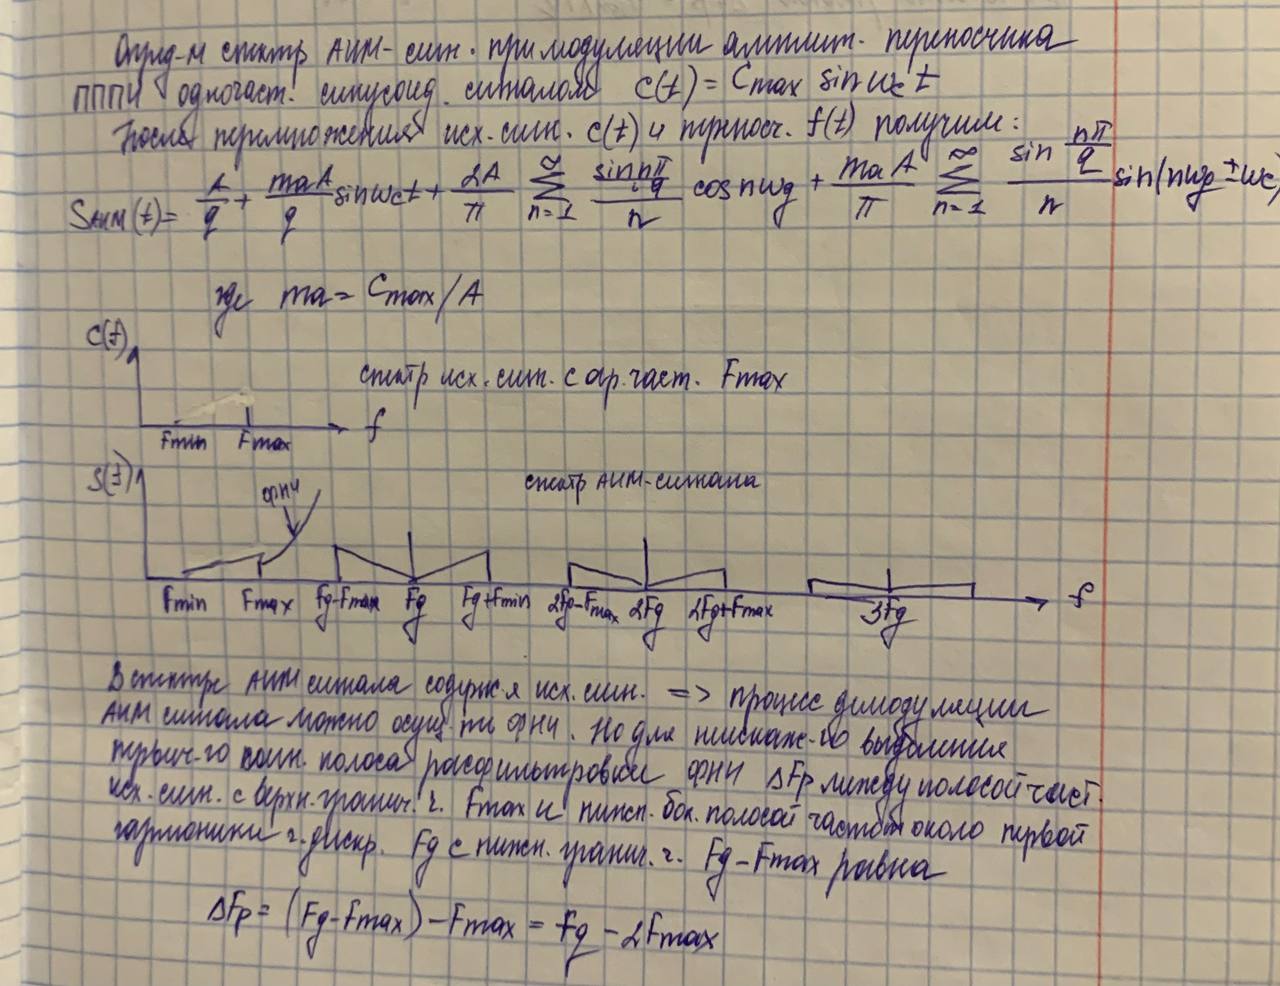 Опред-м спектр АИМ-сигн. при модуляции амплит. переносчика
ПППИ одночаст. синусоид. сигналом C(t) = Cmax sin ωc t
После перемножения исх. сигн. c(t) и перенос. f(t) получим:
SАИМ(t) = A/q + maA/q sin ωc t + 2A/π ∑ n=1 ∞ (sin nπ/q)/n cos nωg + maA/π ∑ n=1 ∞ (sin nπ/q)/n sin(nωg ± ωc)
где ma = Cmax/A
C(t)
спектр исх. сигн. с гр. част. Fmax
f
Fmin Fmax
S(t)
ФНЧ
спектр АИМ-сигнала
Fmin Fmax Fg-Fmax Fg Fg+Fmin 2Fg-Fmax 2Fg 2Fg+Fmax 3Fg f
В спектре АИМ сигнала содерж-я исх. сигн. => процесс демодуляции
АИМ сигнала можно осущ-ть ФНЧ. Но для неискаж-го выделения
первич-го сигн. полоса расфильтровки ФНЧ ΔFp между полосой част.
исх. сигн. с верхн. гранич. ч. Fmax и нижн. бок. полосой частот около первой
гармоники ч. дискр. Fg с нижн. гранич. ч. Fg-Fmax равна
ΔFp = (Fg-Fmax) - Fmax = Fg - 2Fmax